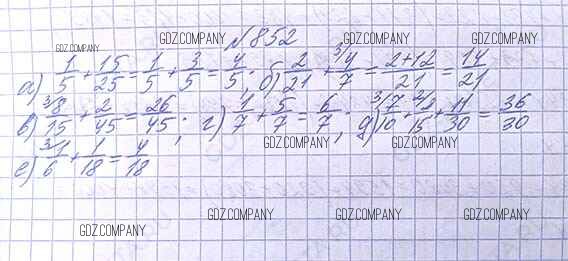 GDZ.COMPANY №852 GDZ.COMPANY GDZ.COMPANY GDZ.COMPANY
GDZ.COMPANY
а) 1/5 + 15/25 = 1/5 + 3/5 = 4/5; б) 2/21 + ³⁾4/7 = 2+12/21 = 14/21
в) ³⁾8/15 + 2/45 = 26/45; г) 1/7 + 5/7 = 6/7; д) ³⁾7/10 + ²⁾2/15 + 11/30 = 36/30
GDZ.COMPANY GDZ.COMPANY
е) ³⁾1/6 + 1/18 = 4/18
GDZ.COMPANY GDZ.COMPANY GDZ.COMPANY
GDZ.COMPANY